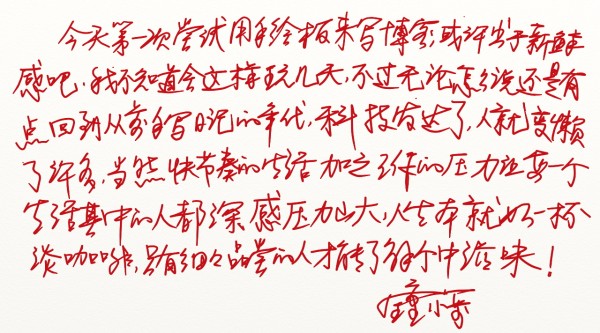 今天第一次尝试用手绘板来写博客,或许出于新鲜
感吧,我不知道会这样玩几天,不过无论怎么说还是有
点回到从前手写日记的年代,科技发达了,人就变懒
了许多,当然快节奏的生活加之工作的压力让每一个
生活其中的人都深感压力山大,人生本就如一杯
淡咖啡,只有细细品尝的人才能了解个中滋味!